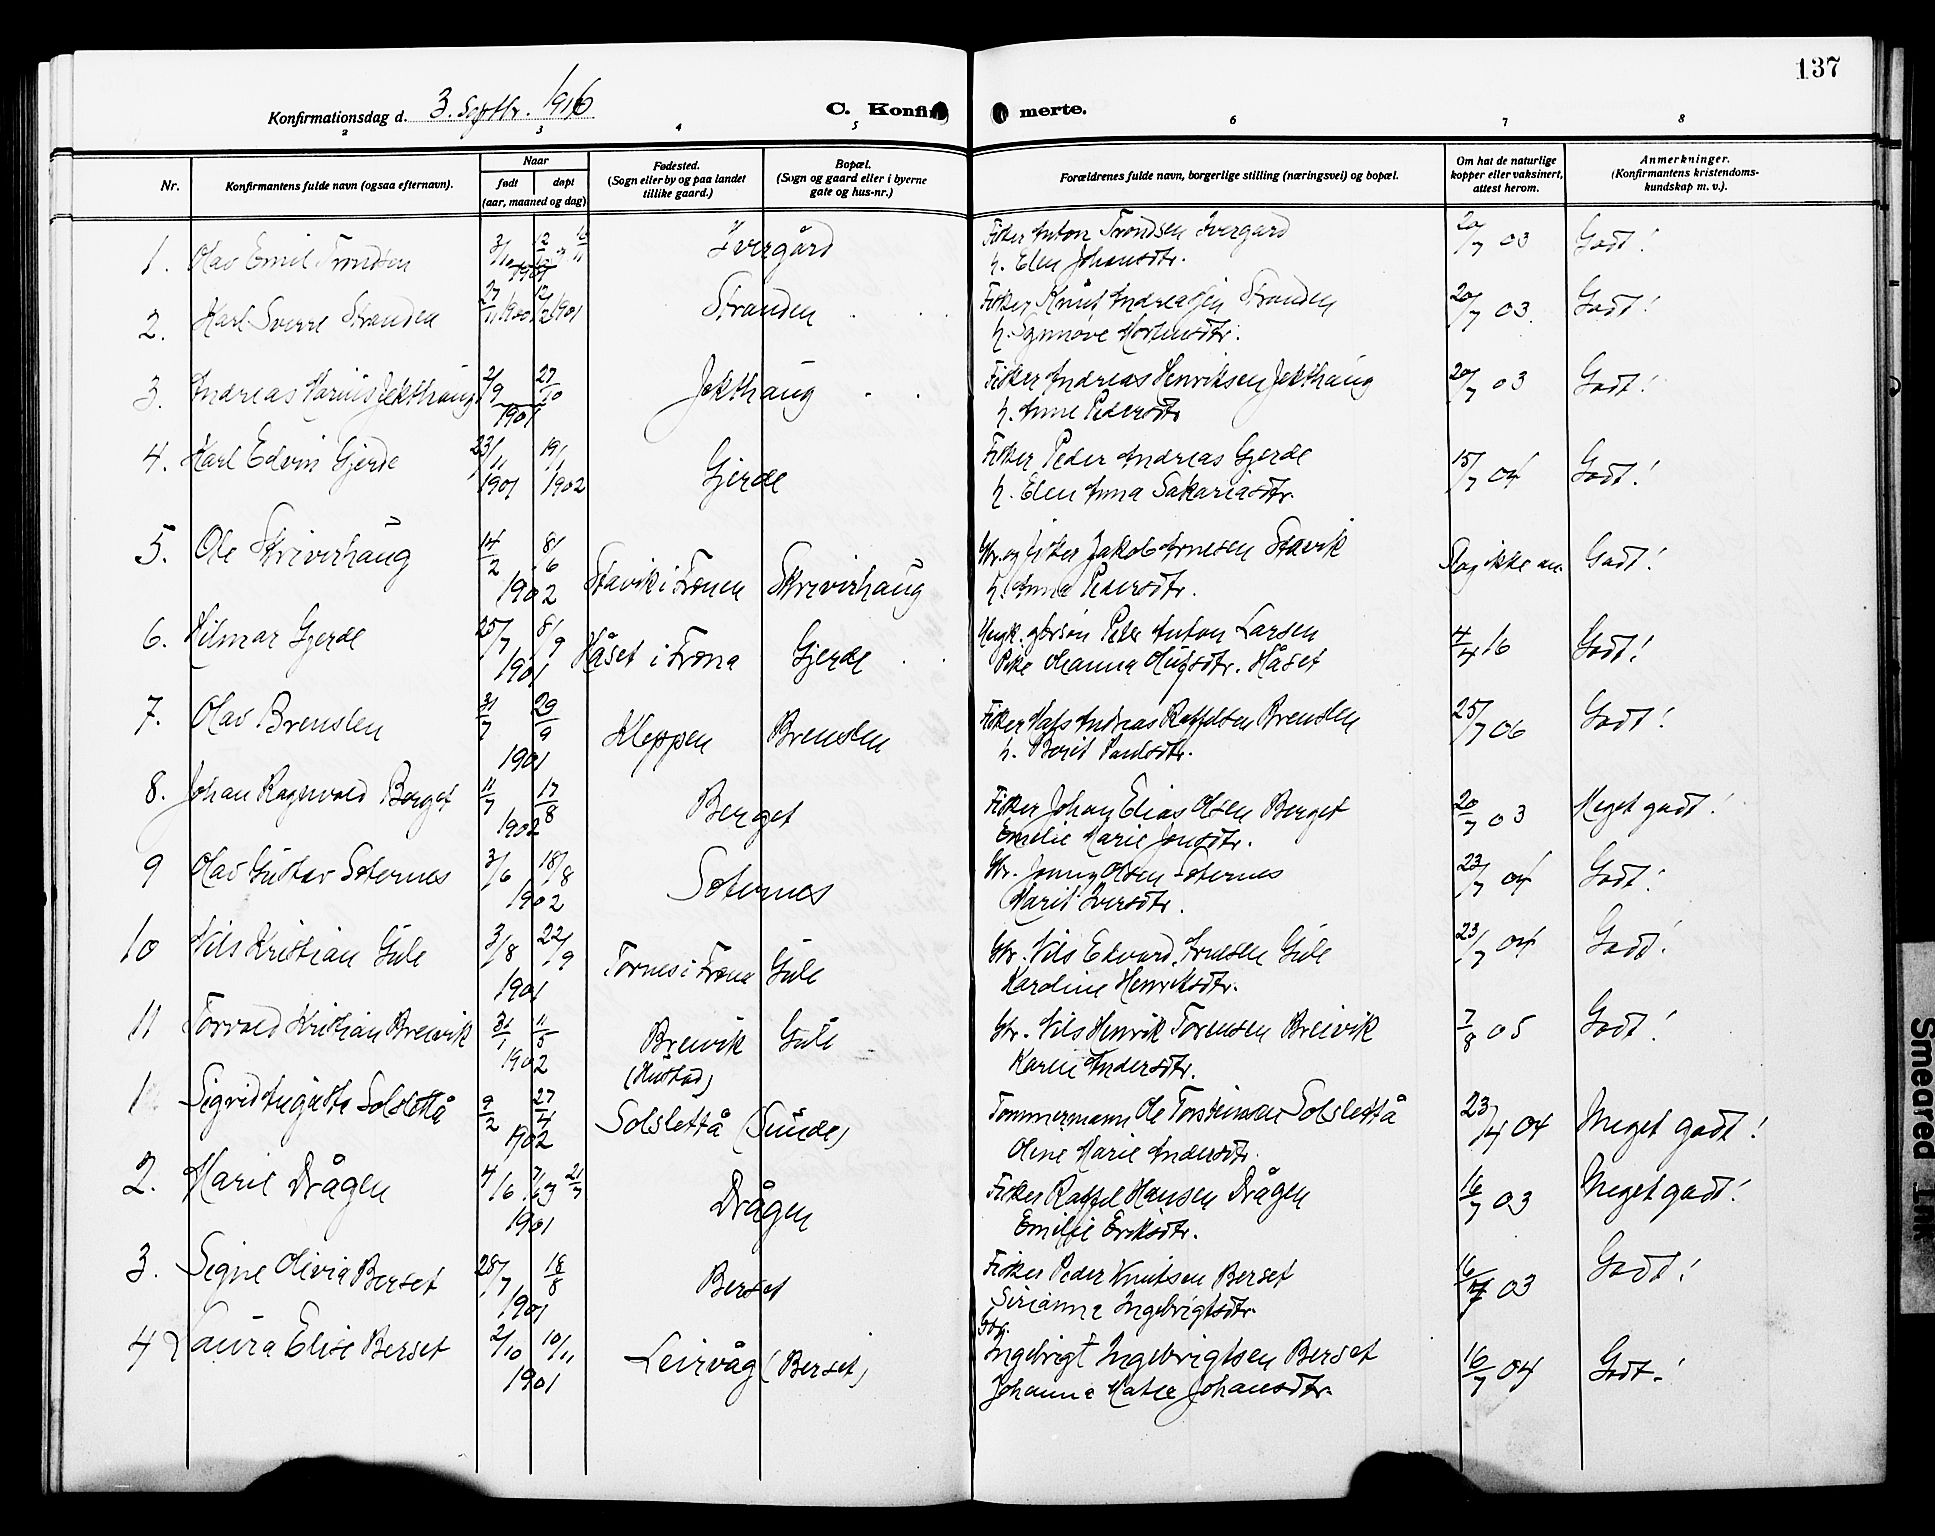 137
Konfirmationsdag d. 3. Septbr. 1916
C. Konfir merte.
2 3 4 5 6 7 8
Nr. Konfirmantens fulde navn (ogsaa efternavn). Naar født døpt (aar, maaned og dag) Fødested. (Sogn eller by og paa landet tillike gaard.) Bopæl. (Sogn og gaard eller i byerne gate og hus-nr.) Forældrenes fulde navn, borgerlige stilling (næringsvei) og bopæl. Om hat de naturlige kopper eller vaksinert, attest herom. Anmerkninger. (Konfirmantens kristendomskundskap m. v.).
1. Olav Emil Trondsen 1901 Ivergård Fisker Anton Trondsen Ivergard 20/7 03 Godt!
h. Elen Johansdtr.
2. Karl Sverre Stranden 27/11 1900 12/2 1901 Stranden Fisker Knut Andreassen Stranden 20/7 03 Godt!
h. Synnøve Mortensdtr.
3. Andreas Marius Jekthaug 2/9 27/10 Jekthaug Fisker Andreas Henriksen Jekthaug 20/7 03 Godt!
1901 h. Anne Pedersdtr
4. Karl Edvin Gjerde 23/11 19/1 Gjerde Fisker Peder Andreas Gjerde 15/7 04 Godt!
1901 1902 h. Elen Anna Sakariasdtr.
5. Ole Skriverhaug 14/2 8/6 Gbr. og fisker Jakob Arnesen Stavik Slog ikke an. Godt!
1902 Stavik i Frænen Skriverhaug h. Anna Pedersdtr.
6. Hilmar Gjerde 25/7 8/9 Håset i Fræna Gjerde Ungk. gbrsøn Peter Anton Larsen 4/4 16 Godt!
1901 Pike Hanna Olufsdtr. Håset
7. Olav Brenslen 31/7 29/9 Kleppen Brenslen Fisker Mats Andreas Raffelsen Brenslen 25/7 06 Godt!
1901 h. Berit Paulsdtr.
8. Johan Ragnvald Berget 11/7 17/8 Berget Fisker Johan Elias Olsen Berget 20/7 03 Meget godt!
1902 Emelie Marie Jonsdtr.
9 Olav Gustav Soternes 3/6 18/8 Soternes Gbr. Jonny Olsen Soternes 23/7 04 Godt!
1902 Marit Iversdtr.
10 Nils Kristian Gule 3/8 22/9 Tornes i Fræna Gule Gbr. Nils Edvard Arnesen Gule 23/7 04 Godt!
1901 Karoline Henriksdtr.
11 Torvald Kristian Breivik 31/1 11/5 Breivik Gule Gbr. Nils Henrik Torensen Breivik 7/8 05 Godt!
1902 (Hustad) Karen Andersdtr.
1 Sigrid Augusta Solslettå 9/2 27/4 Solslettå (Sunde) Tømmermann Ole Torsteinsen Solslettå 23/4 04 Meget godt!
1902 Oline Marie Andersdtr.
2. Marie Drågen 4/6 Drågen Fisker Raffel Hansen Drågen 16/7 03 Meget godt!
1901 Emilie Eriksdtr.
3. Signe Olivia Berset 28/7 18/8 Berset Fisker Peder Knutsen Berset 16/7 03 Godt!
1901 Sirianna Ingebrigtsdtr.
4 Laura Elise Berset 2/10 10/11 Leirvåg (Berset) Gbr. Ingebrigt Ingebrigtsen Berset 16/7 04 Godt!
1901 Johanna Matea Johansdtr.
Smeared Ink